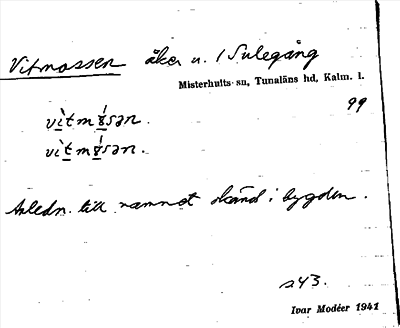 Vitmossen åker u. 1 Sulegång
Misterhults sn, Tunaläns hd, Kalm. l.
99
vìtmǫ́sən.
vìtmǫ́sən.
Anledn. till namnet okänd i bygden.
s43.
Ivar Modéer 1941